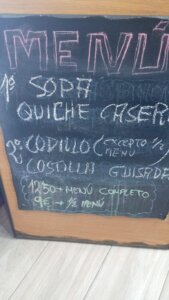 MENÚ
1º SOPA
QUICHE CASER
2º CODILLO (EXCEPTO 1/2 MENÚ)
COSTILLA GUISADA
12'50 → MENÚ COMPLETO
9€ → 1/2 MENÚ